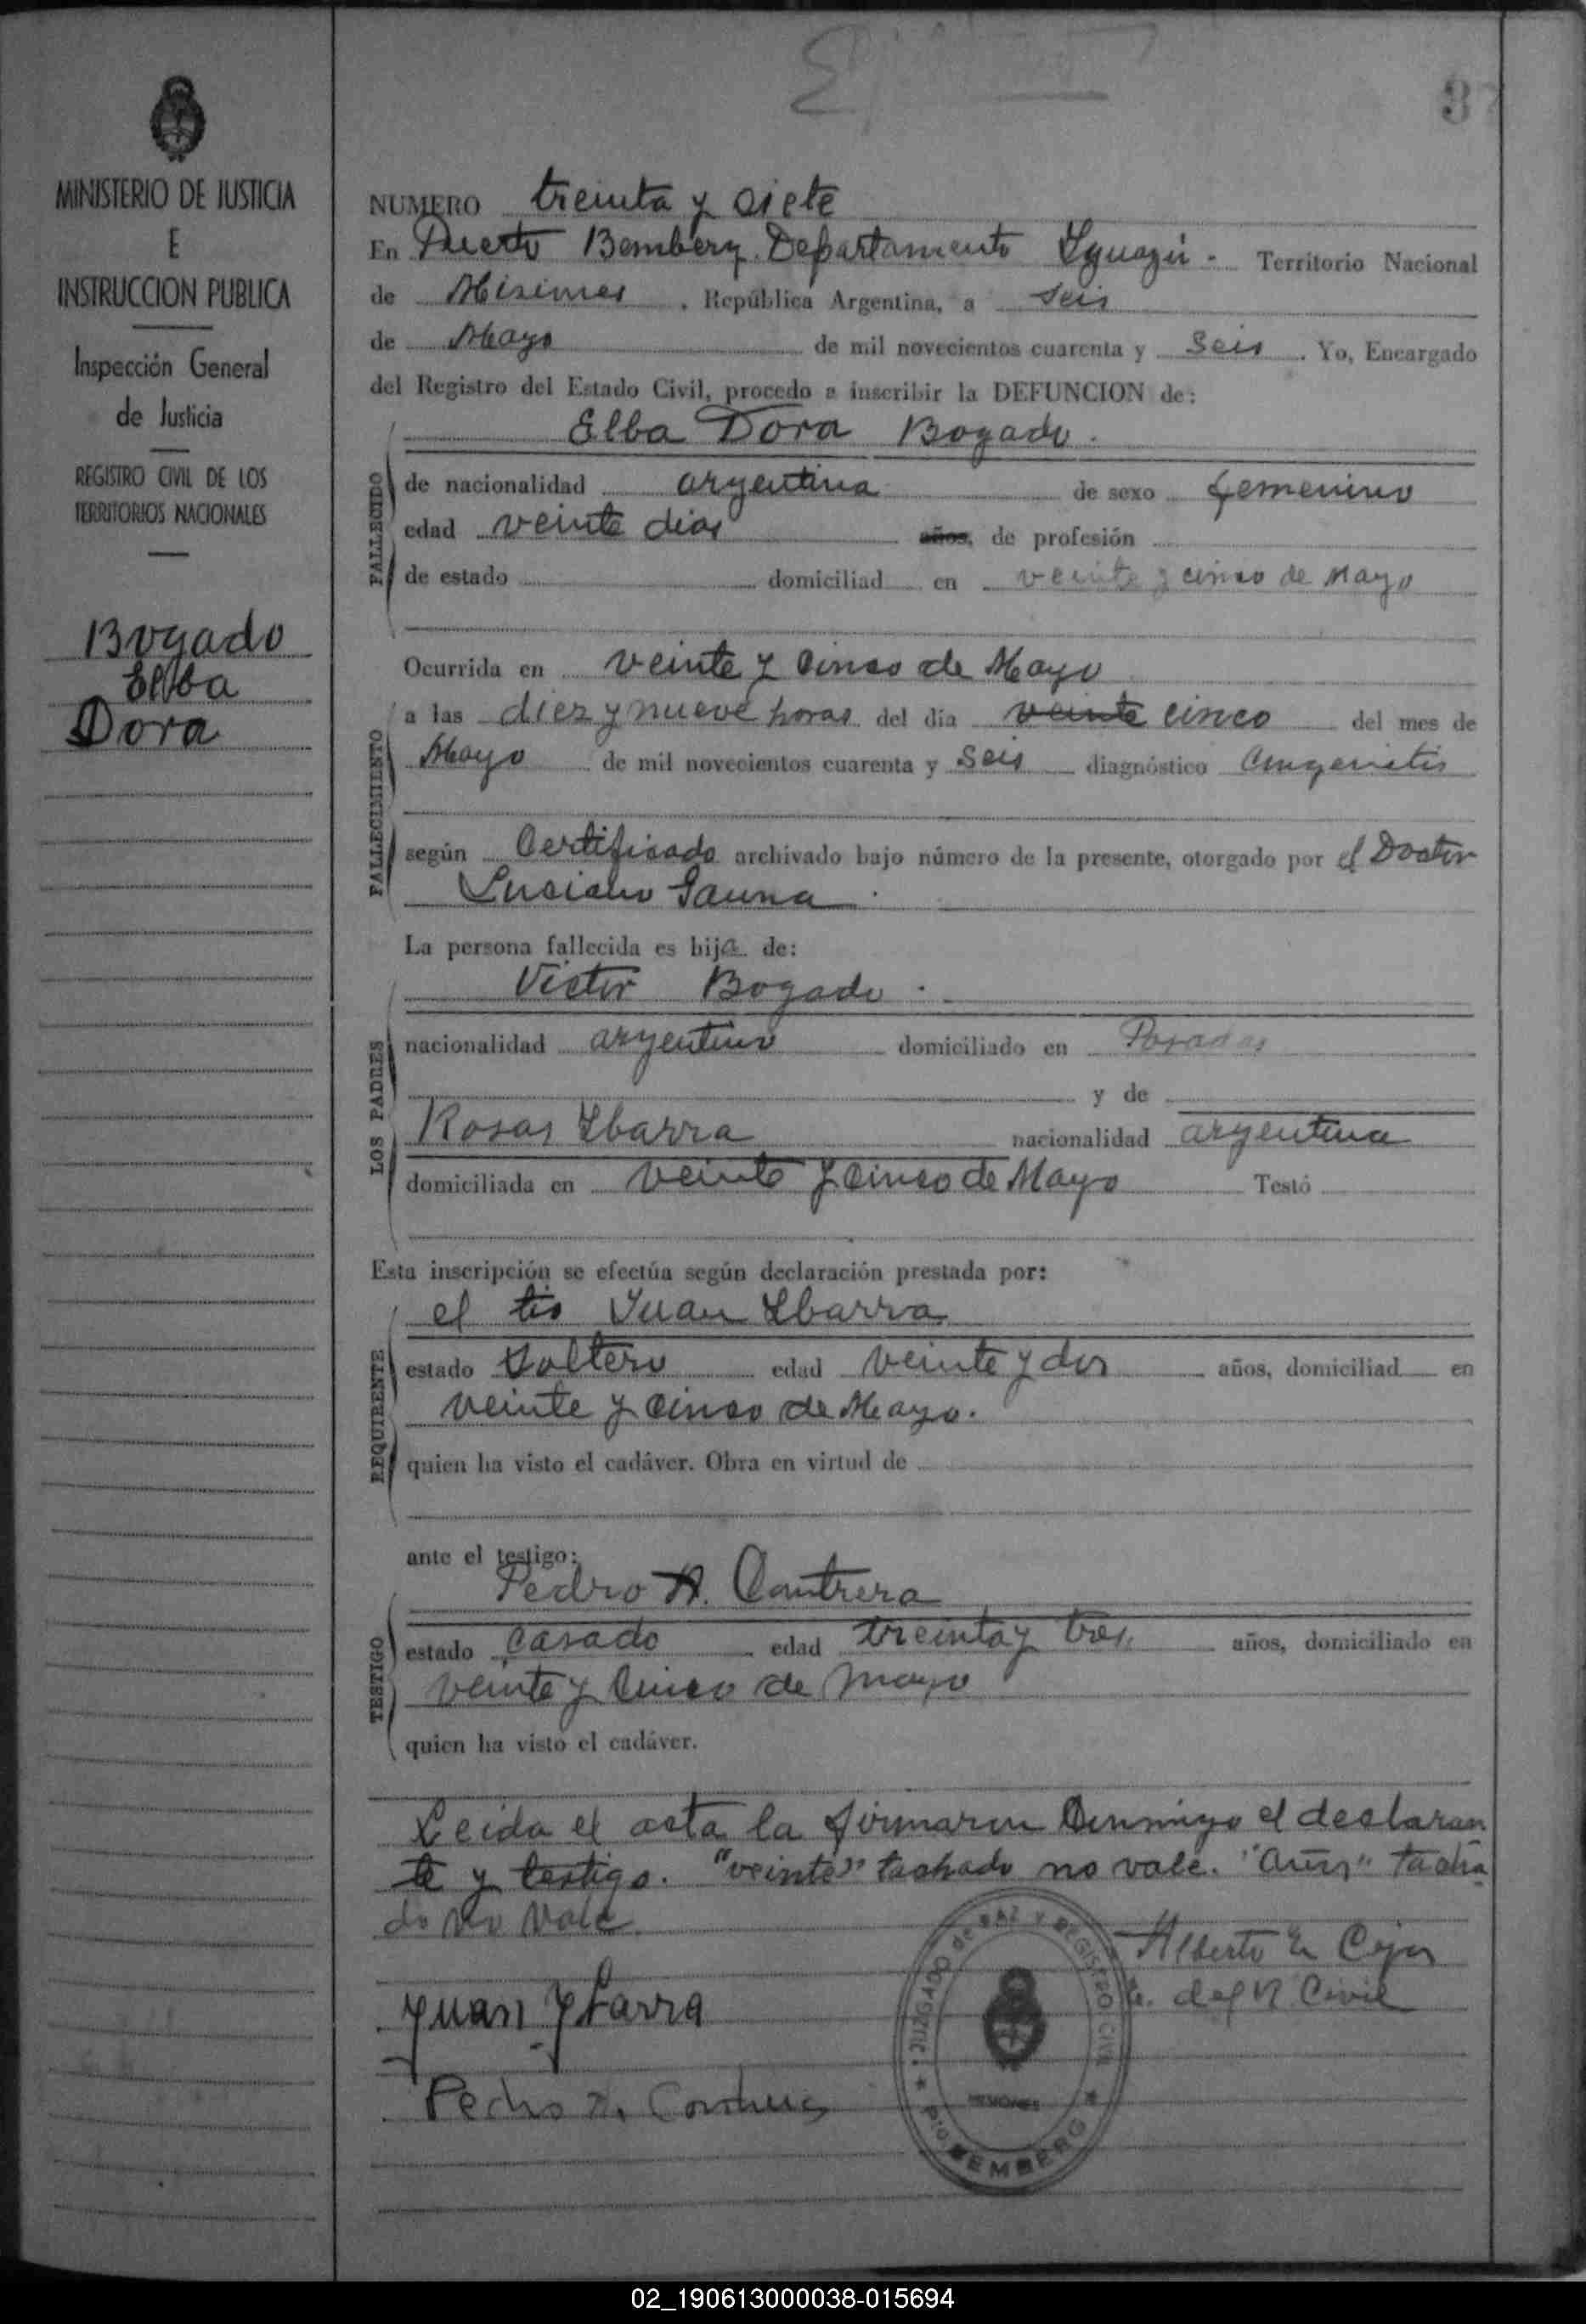 37
MINISTERIO DE JUSTICIA
E
INSTRUCCION PUBLICA
Inspección General
de Justicia
REGISTRO CIVIL DE LOS
TERRITORIOS NACIONALES
Bogado
Elba
Dora
NUMERO treinta y siete
En Puerto Bemberg. Departamento Yguazú. Territorio Nacional
de Misiones, República Argentina, a seis
de Mayo de mil novecientos cuarenta y seis. Yo, Encargado
del Registro del Estado Civil, procedo a inscribir la DEFUNCION de:
Elba Dora Bogado.
FALLECIDO
de nacionalidad argentina de sexo femenino
edad veinte dias años, de profesión
de estado domiciliad en veinte y cinco de Mayo
FALLECIMIENTO
Ocurrida en veinte y cinco de Mayo
a las diez y nueve horas del día veinte cinco del mes de
Mayo de mil novecientos cuarenta y seis diagnóstico
según Certificado archivado bajo número de la presente, otorgado por el Doctor
Luciano Gauna.
La persona fallecida es hija de:
LOS PADRES
Victor Bogado.
nacionalidad argentino domiciliado en Posadas
y de
Rosas Ybarra nacionalidad argentina
domiciliada en veinte y cinco de Mayo Testó
Esta inscripción se efectúa según declaración prestada por:
REQUIRENTE
el tio Juan Ybarra
estado soltero edad veinte y dos años, domiciliad en
veinte y cinco de Mayo.
quien ha visto el cadáver. Obra en virtud de
ante el testigo:
TESTIGO
Pedro A. Contrera
estado casado edad treinta y tres años, domiciliado en
veinte y cinco de mayo
quien ha visto el cadáver.
Leida el acta la firmaron conmigo el declaran
te y testigo. "veinte" tachado no vale. "años" tacha
do no vale
Alberto E.
E. del R. Civil
Juan Ybarra
Pedro A. Contrera
JUZGADO de PAZ Y REGISTRO CIVIL
MISIONES
Pto BEMBERG
02_190613000038-015694